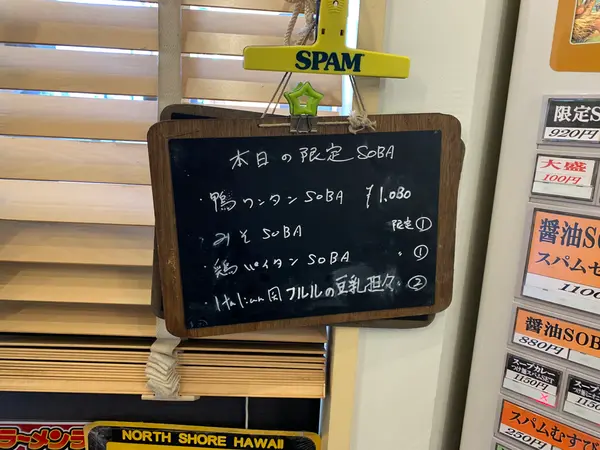 SPAM
本日の限定 SOBA
・鴨ワンタン SOBA ¥1,080
・みそ SOBA 限定①
・鶏パイタン SOBA 〃 ①
・Italian風フルルの豆乳担々 ②
限定S
920円
大盛
100円
醤油SOB
スパムセ
1100
醤油SOB
880円
スープカレー
1150円
1150
スパムむすび
250円
ラーメンデ
NORTH SHORE HAWAII